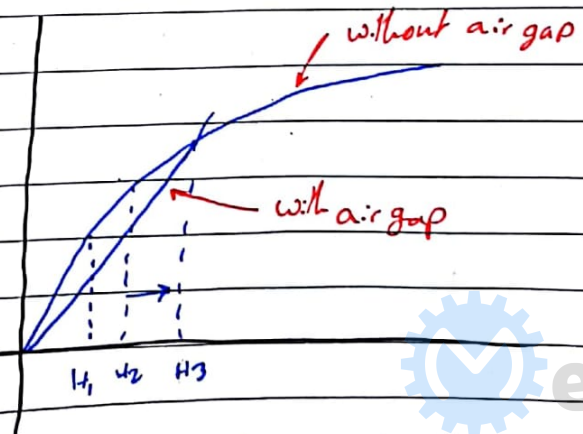 without air gap
with air gap
H1 H2 H3
e